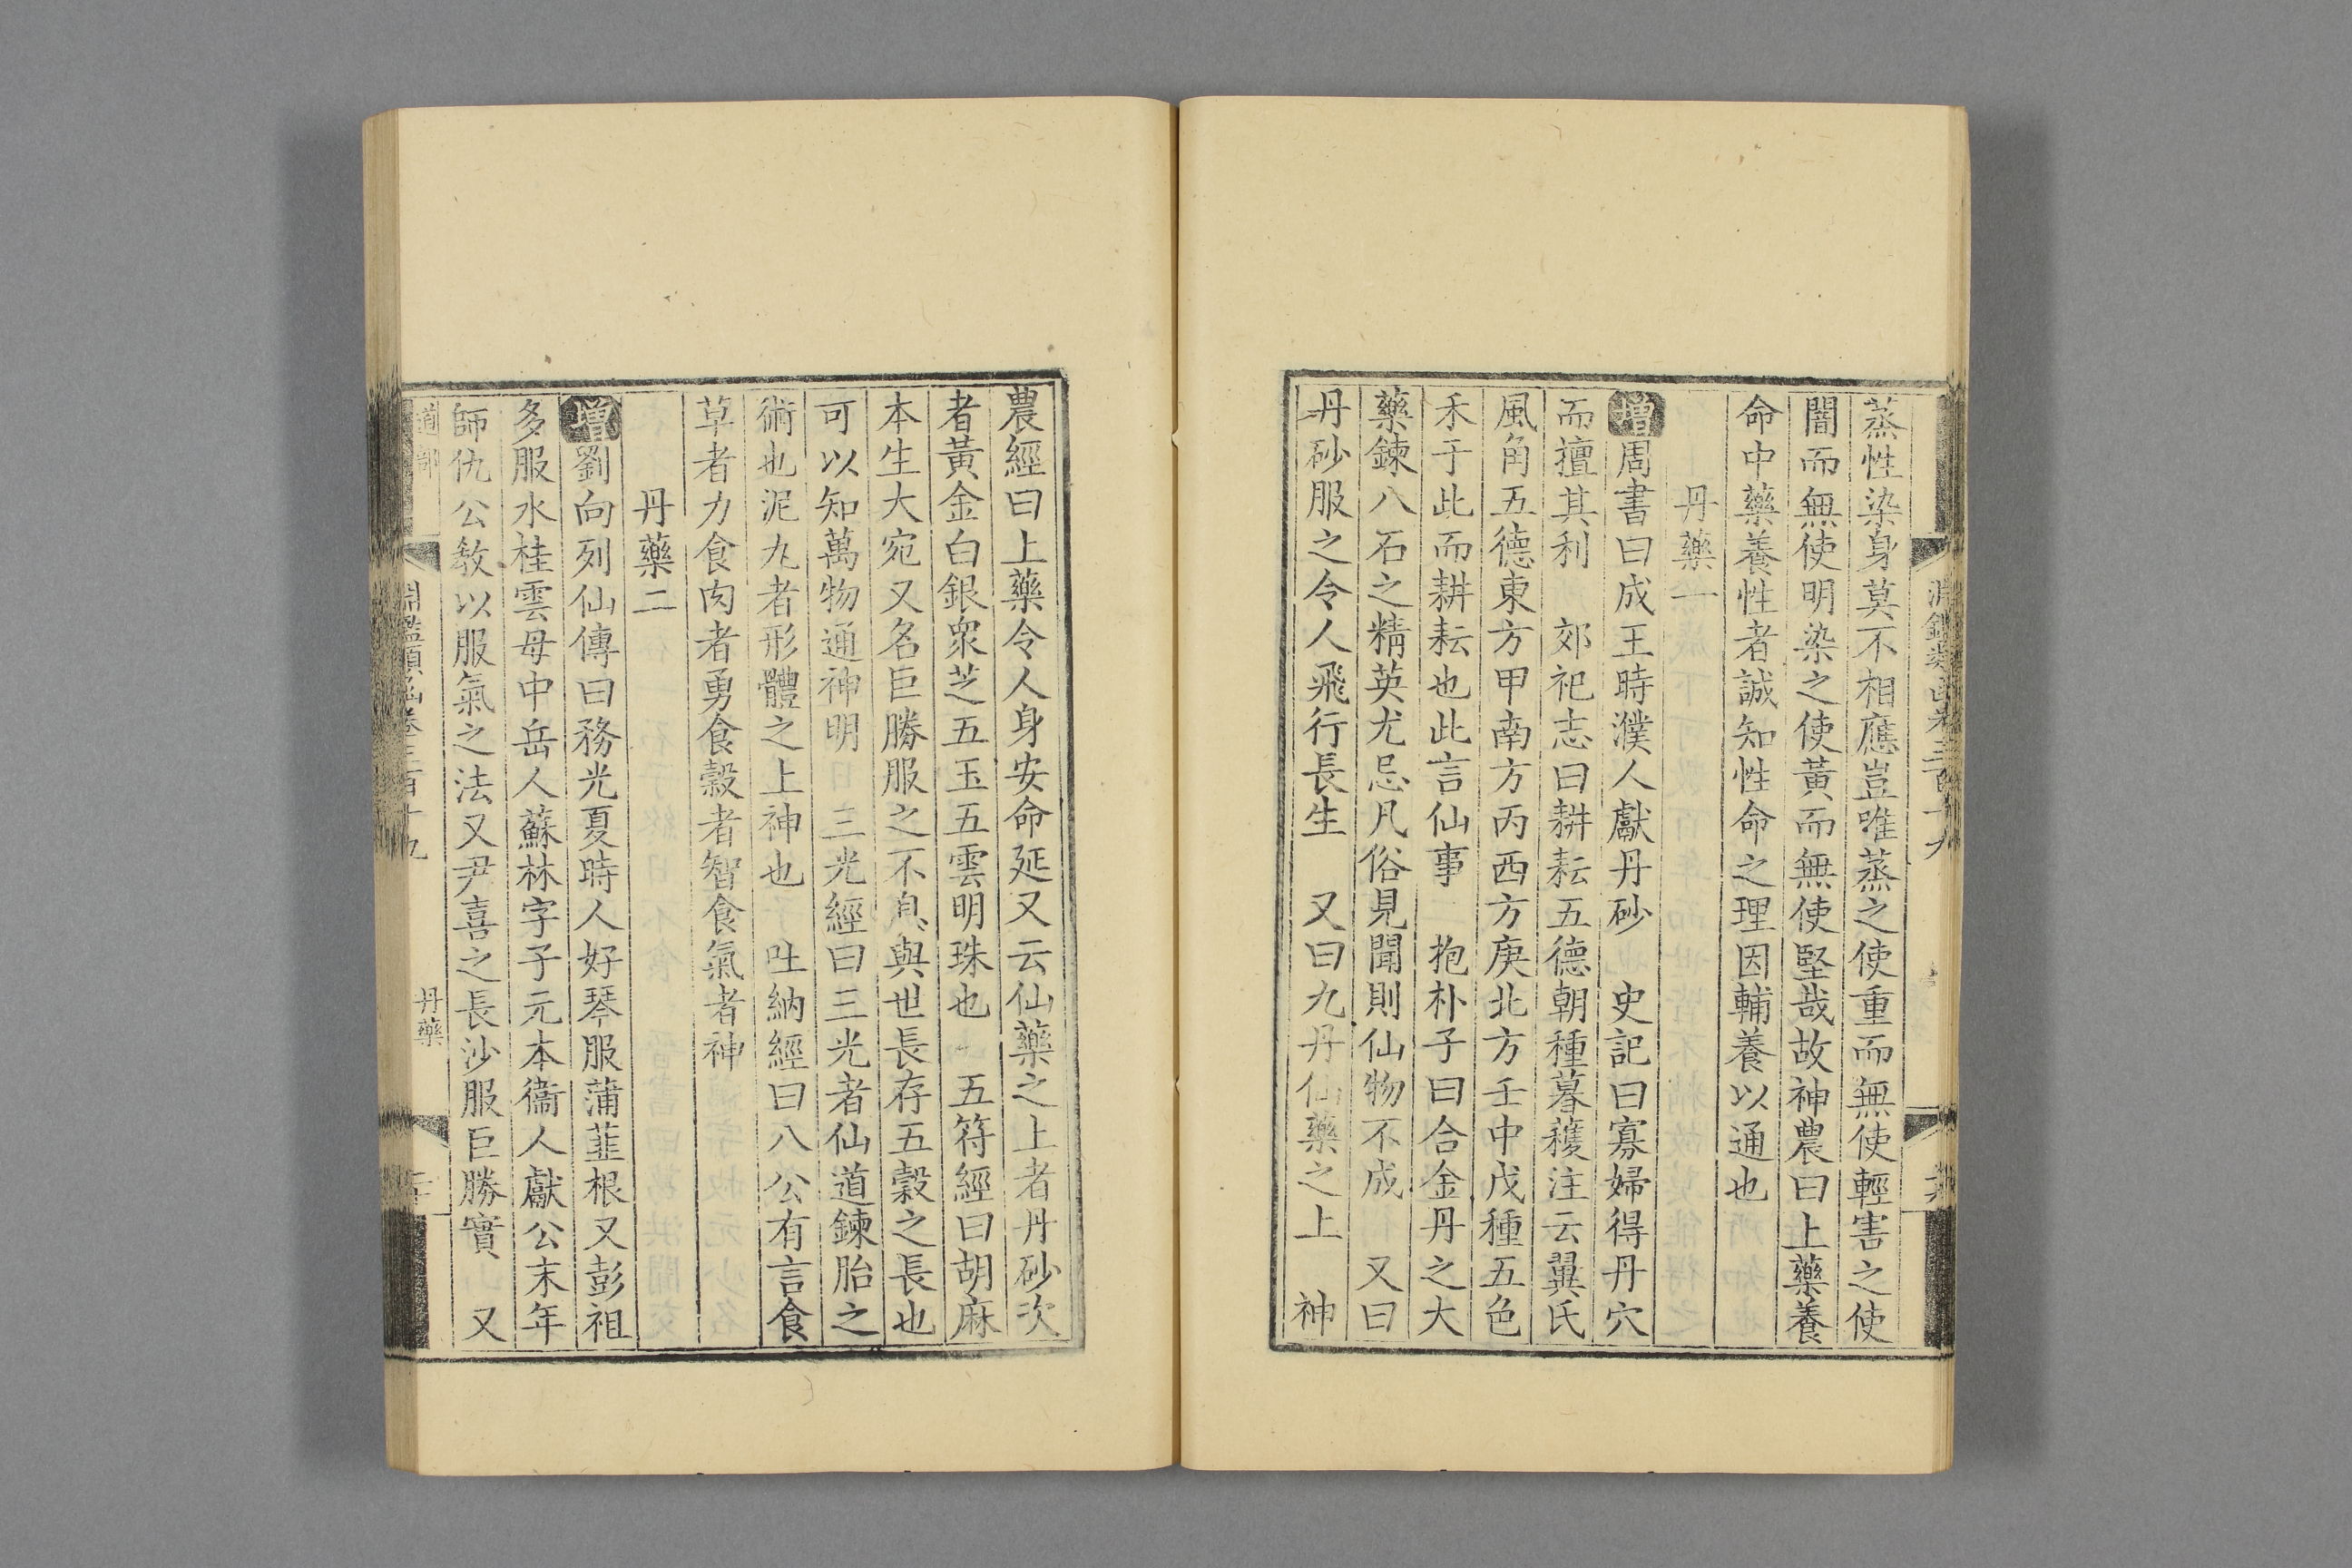 蒸性染身莫不相應豈唯蒸之使重而無使輕害之使
闇而無使明染之使黃而無使堅哉故神農曰上藥養
命中藥養性者誠知性命之理因輔養以通也
丹藥一
增周書曰成王時濮人獻丹砂 史記曰寡婦得丹穴
而擅其利 郊祀志曰耕耘五德朝種暮穫注云翼氏
風角五德東方甲南方丙西方庚北方壬中戊種五色
禾于此而耕耘也此言仙事 抱朴子曰合金丹之大
藥鍊八石之精英尤忌凡俗見聞則仙物不成 又曰
丹砂服之令人飛行長生 又曰九丹仙藥之上 神
農經曰上藥令人身安命延又云仙藥之上者丹砂次
者黃金白銀衆芝五玉五雲明珠也 五符經曰胡麻
本生大宛又名巨勝服之不息與世長存五穀之長也
可以知萬物通神明 三光經曰三光者仙道鍊胎之
術也泥丸者形體之上神也 吐納經曰八公有言食
草者力食肉者勇食穀者智食氣者神
丹藥二
增劉向列仙傳曰務光夏時人好琴服蒲韮根又彭祖
多服水桂雲母中岳人蘇林字子元本衞人獻公末年
師仇公教以服氣之法又尹喜之長沙服巨勝實 又
道部
淵鑑類函卷三百十九
丹藥